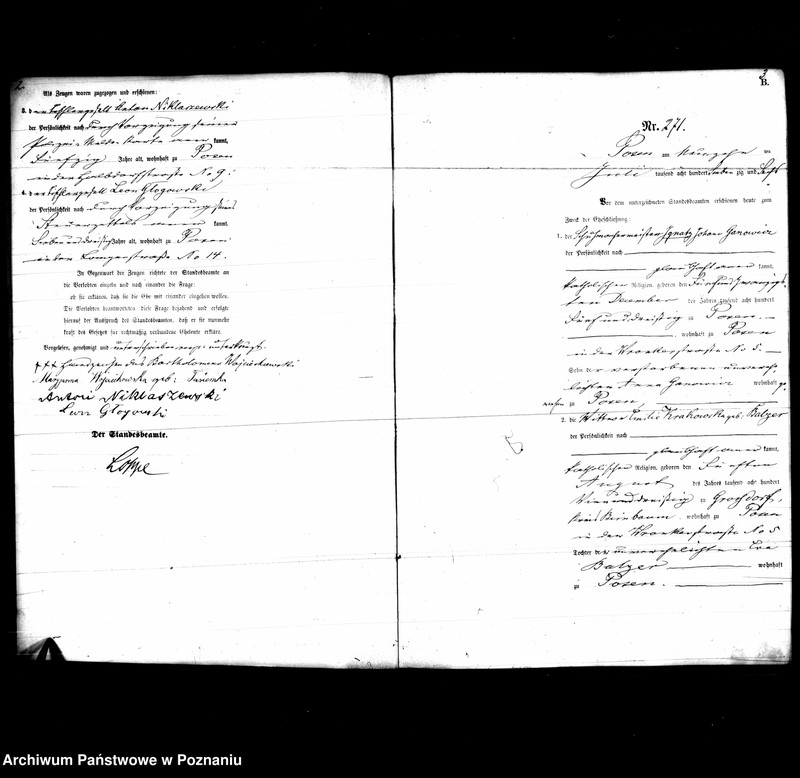 2.
Als Zeugen waren zugezogen und erschienen:
3. der Anton Niklaszewski
der Persönlichkeit nach durch Vorzeigung seiner
Polizei-Melde-Karte kannt,
fünfzig Jahre alt, wohnhaft zu Posen
in der Halbdorfstraße No 9;
4. der Leon Głogowski,
der Persönlichkeit nach durch Vorzeigung seines
Steuerzettels kannt,
siebenunddreißig Jahre alt, wohnhaft zu Posen
in der straße No 14.
In Gegenwart der Zeugen richtete der Standesbeamte an
die Verlobten einzeln und nach einander die Frage:
ob sie erklären, daß sie die Ehe mit einander eingehen wollen.
Die Verlobten beantworteten diese Frage bejahend und erfolgte
hierauf der Ausspruch des Standesbeamten, daß er sie nunmehr
kraft des Gesetzes für rechtmäßig verbundene Eheleute erkläre.
Vorgelesen, genehmigt und unterschrieben resp: unterkreuzt.
+++ Handzeichen des Bartholomeus Wojciechowski
Maryanna Wojciechowska geb:
Antoni Niklaszewski
Leon Głogowski
Der Standesbeamte.
Loppe
3
B.
Nr. 271.
Posen am neunzehn ten
Juli tausend acht hundert sieben zig und sechs
Vor dem unterzeichneten Standesbeamten erschienen heute zum
Zweck der Eheschließung:
1. der Schuhmachermeister Ignatz Johann Ganowicz
der Persönlichkeit nach
glaubhaft aner kannt,
katholischer Religion, geboren den fünfundzwanzigs-
ten December des Jahres tausend acht hundert
fünfunddreißig zu Posen
, wohnhaft zu Posen
in der Wronkerstraße No 5.
Sohn der verstorbenen unverehe-
lichten Anna Ganowicz wohnhaft ge-
wesen zu Posen,
2. die Wittwe Emilie Krakowska geb: Balzer
der Persönlichkeit nach
glaubhaft aner kannt,
katholischer Religion, geboren den fünften
August des Jahres tausend acht hundert
vierunddreißig zu Großdorf,
Kreis Birnbaum, wohnhaft zu Posen
in der Wronkerstraße No 5
Tochter der unverehelichten Eva
Balzer wohnhaft
zu Posen.
Archiwum Państwowe w Poznaniu